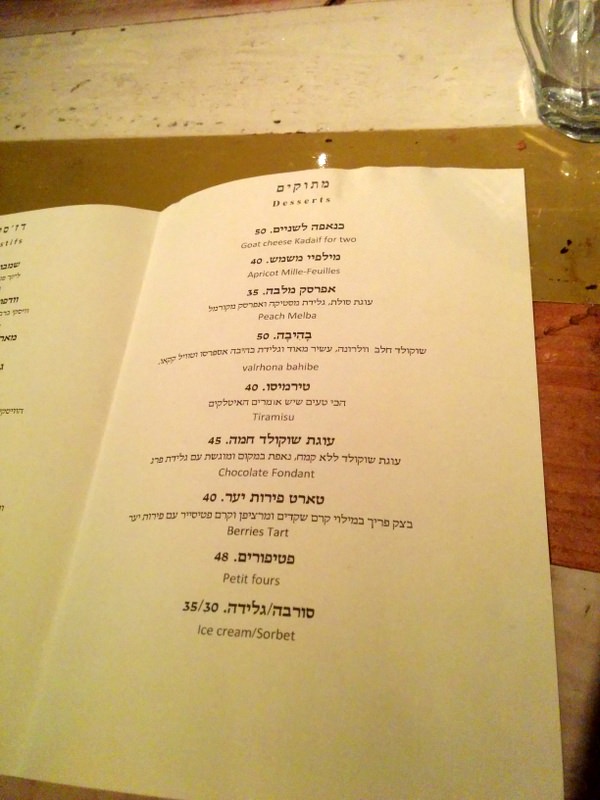 מתוקים
Desserts
כנאפה לשניים. 50
Goat cheese Kadaif for two
מילפיי משמש. 40
Apricot Mille-Feuilles
אפרסק מלבה. 35
עוגת סולת, גלידת מסטיקה ואפרסק מקורמל
Peach Melba
בָּהִיבָּה. 50
שוקולד חלב וולרונה, עשיר מאוד וגלידת בהיבה אספרסו וטוויל קקאו,
valrhona bahibe
טירמיסו. 40
הכי טעים שיש אומרים האיטלקים
Tiramisu
עוגת שוקולד חמה. 45
עוגת שוקולד ללא קמח, נאפת במקום ומוגשת עם גלידת פרג
Chocolate Fondant
טארט פירות יער. 40
בצק פריך במילוי קרם שקדים ומרציפן וקרם פטיסייר עם פירות יער
Berries Tart
פטיפורים. 48
Petit fours
סורבה/גלידה. 35/30
Ice cream/Sorbet